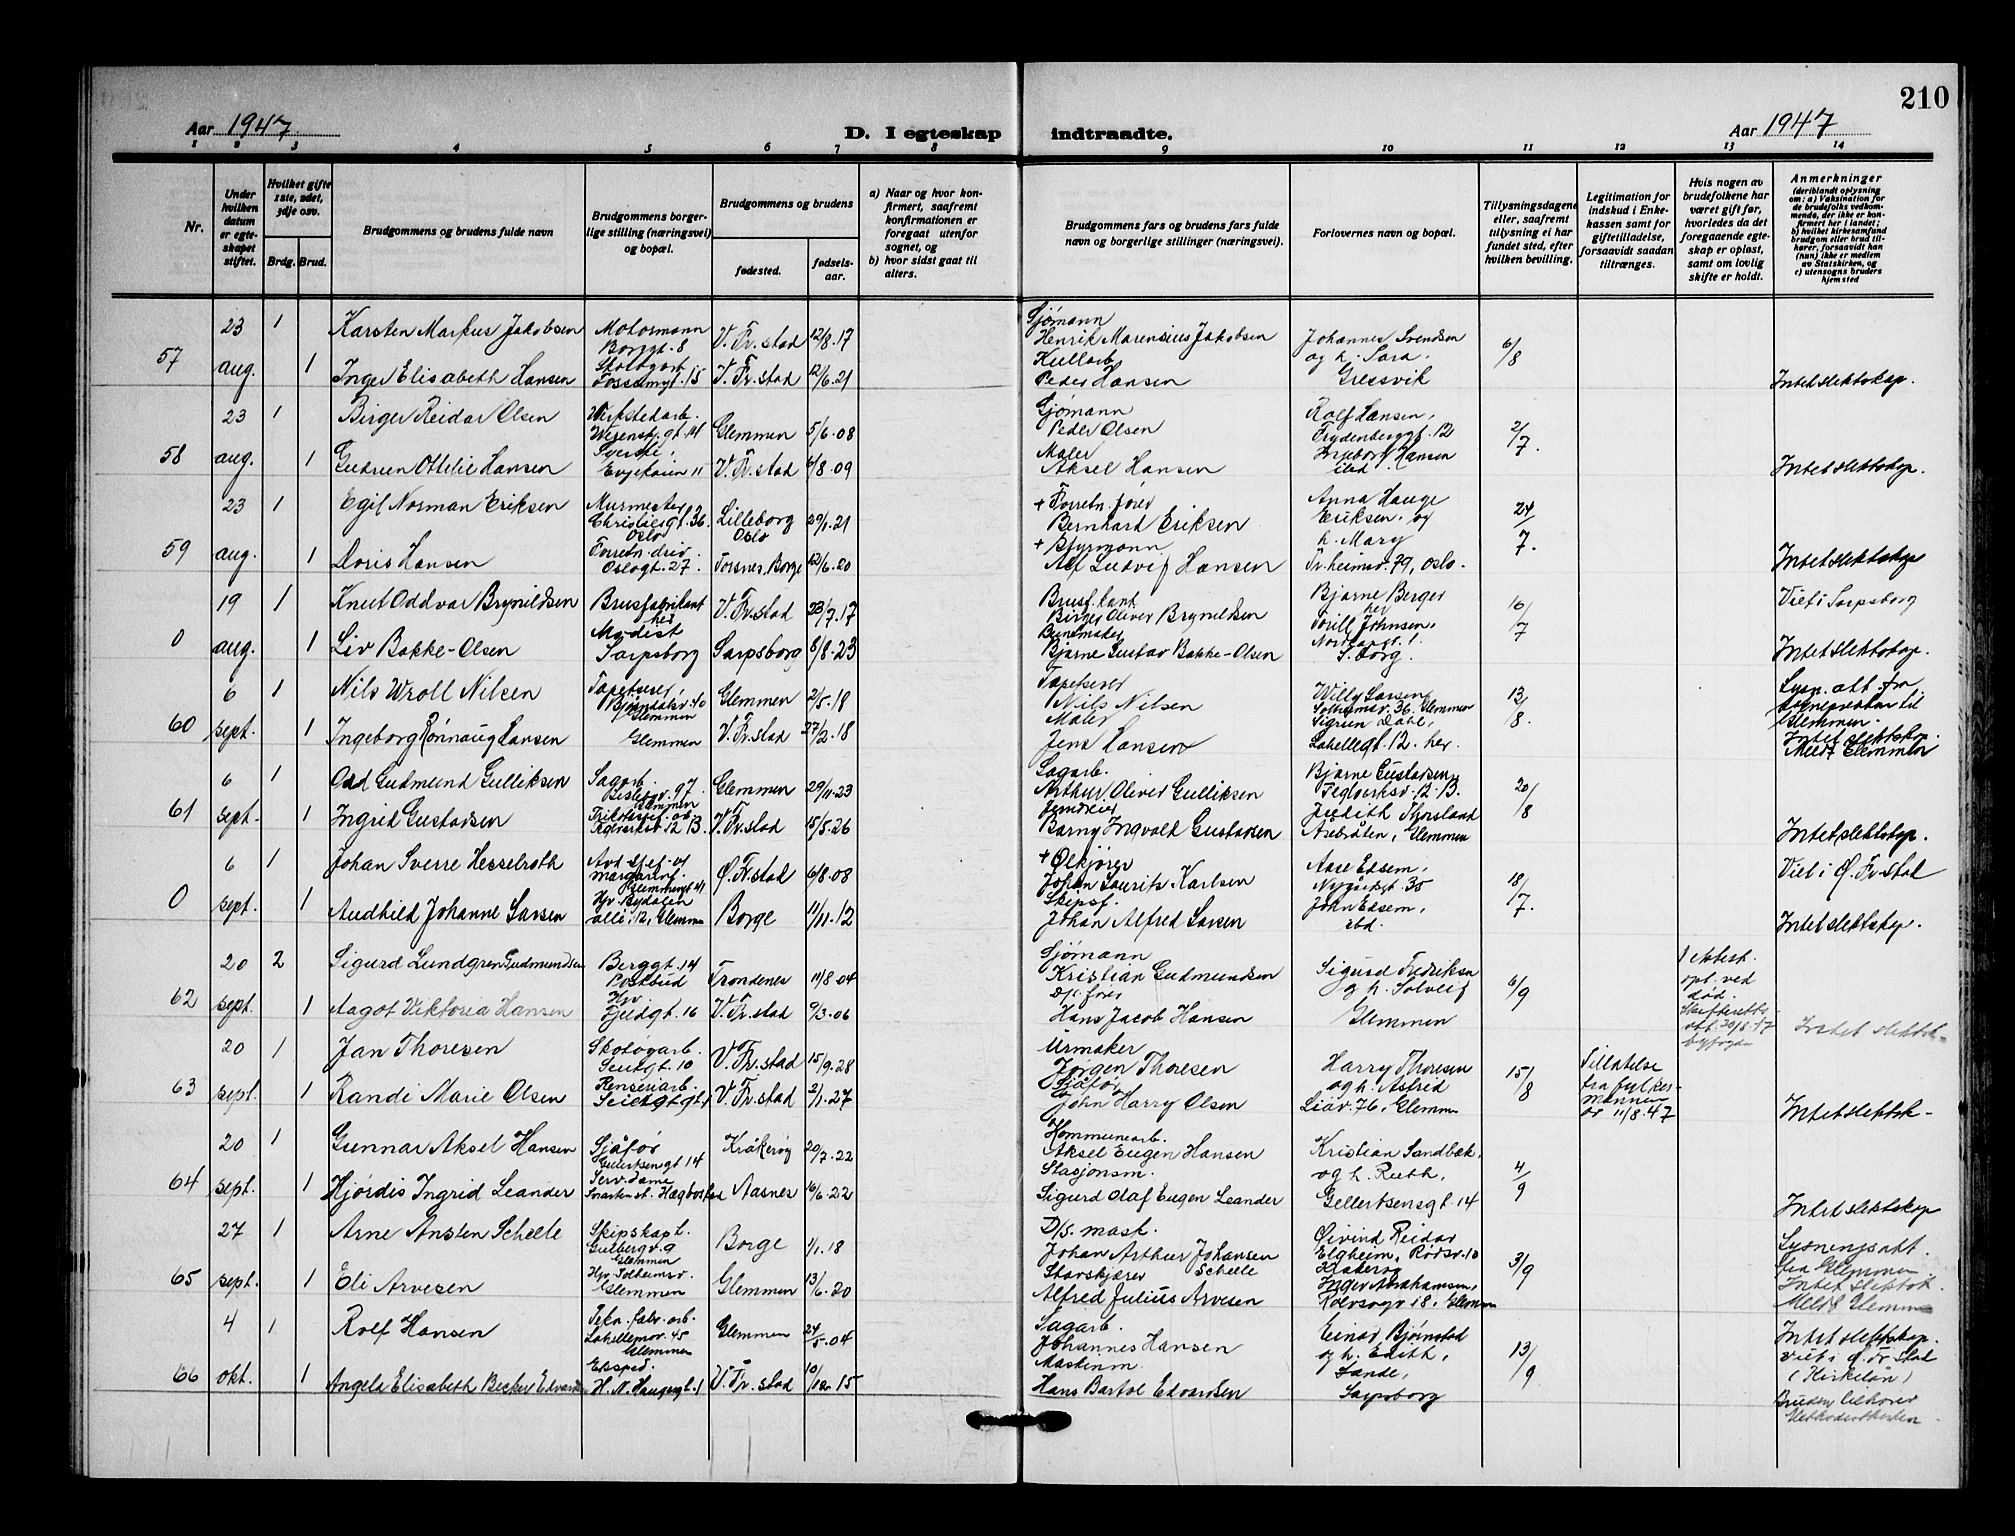 210
Aar 1947
D. I egteskap indtraadte.
Aar 1947
1 2 3 4 5 6 7 8 9 10 11 12 13 14
Nr.
Under hvilken datum er egteskapet stiftet.
Hvilket gifte 1ste, 2det, 3dje osv.
Brdg. Brud.
Brudgommens og brudens fulde navn
Brudgommens borgerlige stilling (næringsvei) og bopæl.
Brudgommens og brudens
fødested.
fødselsaar.
a) Naar og hvor konfirmert, saafremt konfirmationen er foregaat utenfor sognet, og
b) hvor sidst gaat til alters.
Brudgommens fars og brudens fars fulde navn og borgerlige stillinger (næringsvei).
Forlovernes navn og bopæl.
Tillysningsdagene eller, saafremt tillysning ei har fundet sted, efter hvilken bevilling.
Legitimation for indskud i Enkekassen samt for giftetilladelse, forsaavidt saadan tiltrænges.
Hvis nogen av brudefolkene har været gift før, hvorledes da det foregaaende egteskap er opløst, samt om lovlig skifte er holdt.
Anmerkninger (deriblandt oplysning om: a) Vaksination for de brudefolks vedkommende, der ikke er konfirmert her i landet; b) hvilket kirkesamfund brudgom eller brud tilhører, forsaavidt han (hun) ikke er medlem av Statskirken, og c) utensogns bruders hjemsted
57 23 aug. 1 Karsten Markus Jakobsen Motormann Borggt. 8 V. Fr.stad 12/8.17 Sjømann Henrik Marensius Jakobsen Johannes Svendsen og h. Sara. Gressvik 6/8
1 Inger Elisabeth Hansen Skotøyarb. 15 V. Fr.stad 12/6.21 Peder Hansen Intet slektskap.
58 23 aug. 1 Birger Reidar Olsen Verkstedarb. 14 Glemmen 5/6.08 Sjømann Peder Olsen Rolf Hansen, Frydenberggt. 12 2/7.
1 Gudrun Ottilie Hansen Evjekaien 11 V. Fr.stad 6/8.09 Maler Aksel Hansen Ingeborg Hansen ibid Intet slektskap.
59 23 aug. 1 Egil Norman Eriksen Murmester Christiesgt. 36. Oslo Lilleborg Oslo 29/1.21 + Forretn.fører Bernhard Eriksen Anna Hauge Eriksen og h. Mary 24/7.
1 Doris Hansen Forretn.driv. Oslogt. 27. Torsnes, Borge 12/6.20 + Styrmann Alf Ludvig Hansen Tr.heimsv. 79, Oslo. Intet slektskap
0 19 aug. 1 Knut Oddvar Brynildsen Brusfabrikant her V. Fr.stad 23/7.17 Brusf.kant Birger Oliver Brynildsen Bjarne Berger her 16/7 Viet i Sarpsborg
1 Liv Bakke-Olsen Modist Sarpsborg Sarpsborg 8/8.23 Buntmaker Bjarne Gustav Bakke-Olsen Torill Johnsen, S.borg. Intet slektskap.
60 6 sept. 1 Nils Wroll Nilsen Tapetserer, Glemmen Glemmen 2/5.18 Tapetserer Nils Nilsen Willy Larsen 36. Glemmen 13/8. Lysn. att. fra sognepresten til Glemmen.
1 Ingeborg Rønnaug Hansen Glemmen V. Fr.stad 27/2.18 Maler Jens Hansen Sigrun Dahl, Lahellegt. 12. her. Intet slektskap. Meldt Glemmen
61 6 sept. 1 Odd Gudmund Gulliksen Sagarb. 97 Glemmen Glemmen 29/11.23 Sagarb. Arthur Oliver Gulliksen Bjarne Gustavsen, Teglverksv. 12 B. 20/8
1 Ingrid Gustavsen Teglverksv. 12 B. V. Fr.stad 15/5.26 Barny Ingvald Gustavsen Judith Thorsland Årebråten, Glemmen Intet slektskap.
0 6 sept. 1 Johan Sverre Hesselroth Glemmengt 41 Ø. Fr.stad 6/8.08 + Ølkjører Johan Laurits Karlsen Aase Edsem, Nygårdsgt. 35 18/7. Viet i Ø. Fr.stad
1 Audhild Johanne Larsen Hjv Bydalen alle. 12, Glemmen Borge 11/11.12 Skipsf. Johan Alfred Larsen John Edsem, ibd. Intet slektskap.
62 20 sept. 2 Sigurd Lundgren Gudmundsen Berggt. 14 Postbud Trondenes 11/8.04 Sjømann Kristian Gudmundsen Sigurd Fredriksen og h. Solveig Glemmen 6/9 1 ektesk. opl. ved død. Skifteretts-att. 20/8.47
1 Aagot Viktoria Hansen Hjv Fjeldgt. 16 V. Fr.stad 9/3.06 Hans Jacob Hansen Intet slektsk-
63 20 sept. 1 Jan Thoresen Skotøyarb. 10 V. Fr.stad 15/9.28 Urmaker Jørgen Thoresen Harry Thoresen og h. Astrid 15/8 Tillatelse fra fylkesmannen av 11/8.47
1 Randi Marie Olsen Renseriarb. V. Fr.stad 2/1.27 Sjåfør John Harry Olsen Liav. 76. Glemmen Intet slektsk-
64 20 sept. 1 Gunnar Aksel Hansen Sjåfør Gellertsengt 14 Kråkerøy 20/7.22 Kommunearb. Aksel Eugen Hansen Kristian Sandbæk, og h. Ruth, Gellertsensgt. 14 4/9
1 Hjørdis Ingrid Leander Serv. dame Aasnes 16/6.22 Stasjonsm. Sigurd Olaf Eugen Leander Intet slektskap
65 27 sept. 1 Arne Ansten Schelle Skipskapt. Gulbergv. 9 Glemmen Borge 1/1.18 D/S. mask. Johan Arthur Johansen Schelle Øivind Reidar Elgheim, Rødsv. 10 Kråkerøy 3/9 Lysningsatt. fra Glemmen
1 Eli Arvesen Hjv Solheimsv. Glemmen Glemmen 13/6.20 Alfred Julius Arvesen Inger Abrahamsen, Rolvsøyv 18. Glemmen Intet slektsk. Meldt Glemmen
66 4 okt. 1 Rolf Hansen Tekn. fabr. arb. Lahellemov. 45 Glemmen Glemmen 24/5.04 Sagarb. Johannes Hansen Einar Bjørnstad og h. Edith, Sande, Sarpsborg 13/9 Intet slektskap. Viet i Ø. Fr.stad
1 Angela Elisabeth Becker Edvardsen Eksped. H. N. Haugesgt. 1 V. Fr.stad 10/12 15 Hans Bartol Edvardsen Bruden tilhører Metodistkirken